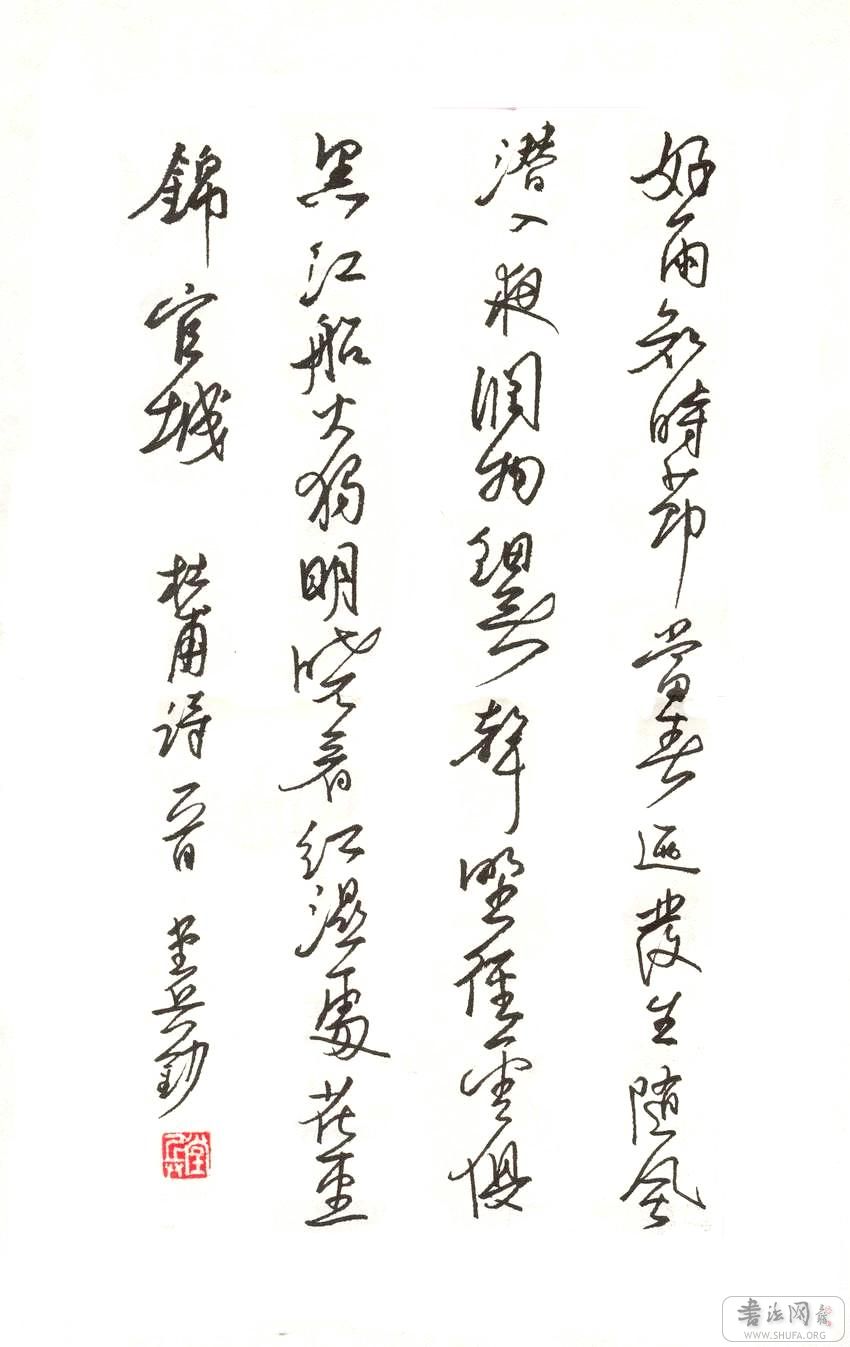 好雨知時節當春迺發生随風
潜入夜潤物細無聲野徑雲俱
黑江船火獨明曉看紅濕處花重
錦官城
杜甫詩一首 堂兵
堂兵
書法网
WWW.SHUFA.ORG